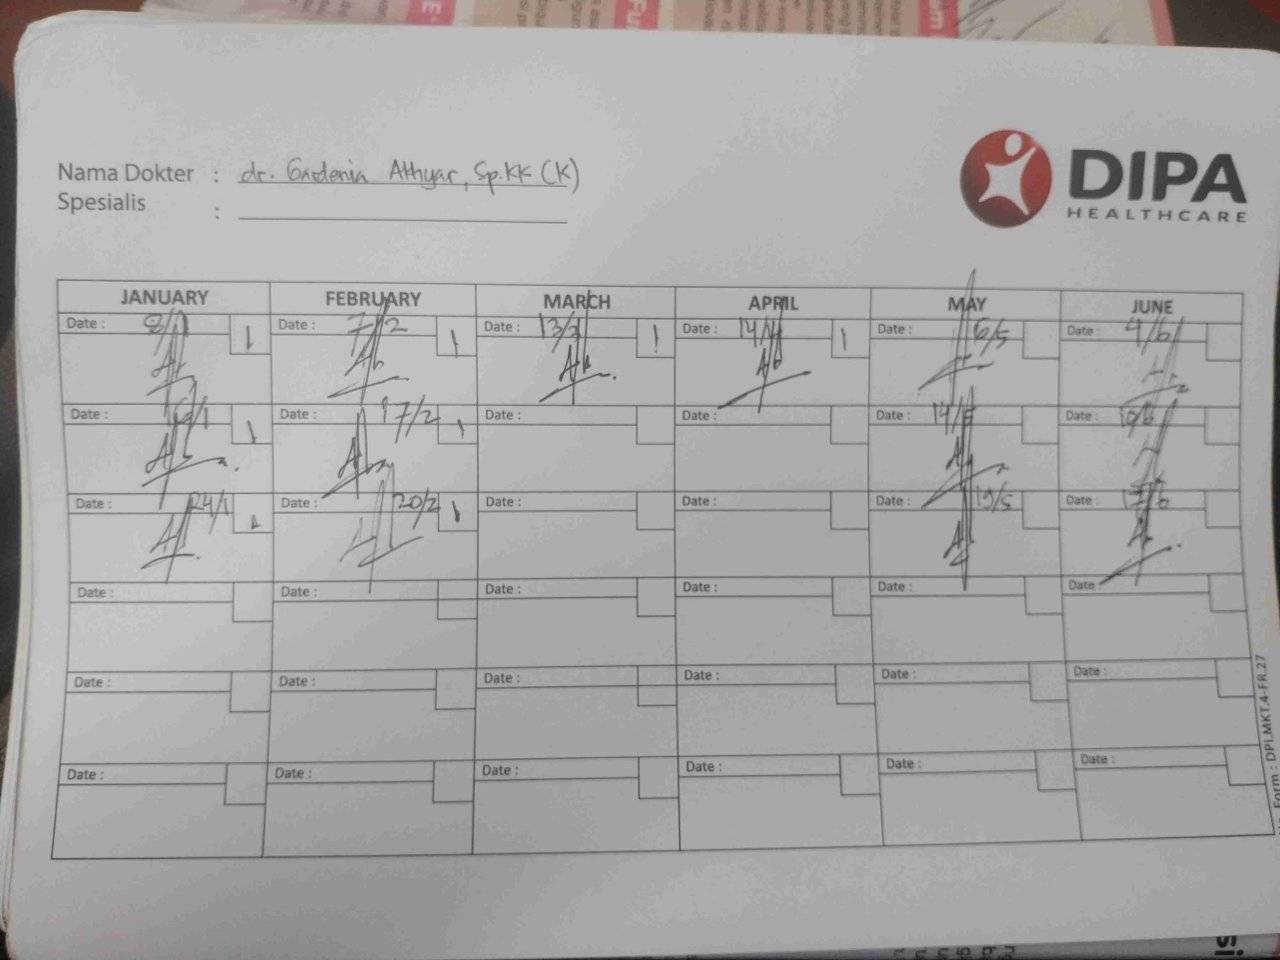 Nama Dokter : dr. Gardenia Athyar, Sp.KK (K)
Spesialis :
DIPA
HEALTHCARE
JANUARY FEBRUARY MARCH APRIL MAY JUNE
Date : 8/1 1 Date : 7/2 1 Date : 13/3 1 Date : 14/4 1 Date : 6/5 Date : 4/6
Date : 1 Date : 17/2 1 Date : Date : Date : 14/5 Date : 10/6
Date : 24/1 1 Date : 20/2 1 Date : Date : Date : 19/5 Date : 17/6
Date : Date : Date : Date : Date : Date :
Date : Date : Date : Date : Date : Date :
Date : Date : Date : Date : Date : Date :
Form : DPI.MKT.4-FR.27
si